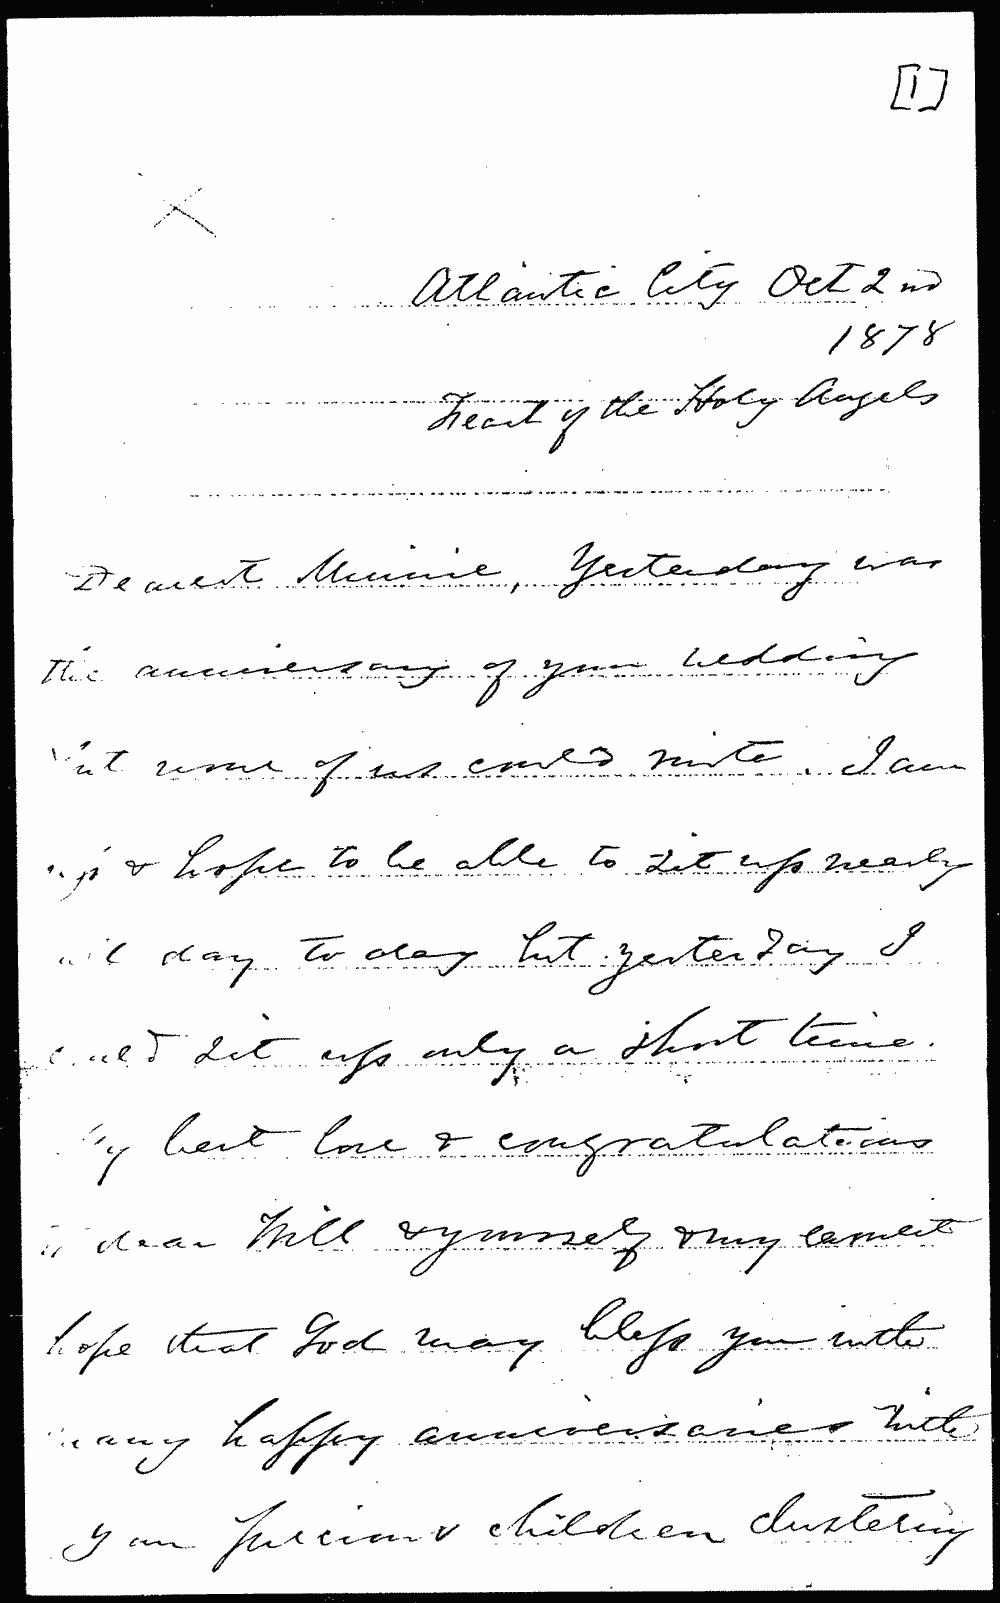 [1]
Atlantic City Oct 2nd
1878
Feast of the Holy Angels
Dearest Minnie, Yesterday was
the anniversary of your wedding
but none of us could write. I am
up & hope to be able to sit up nearly
all day to day but yesterday I
could sit up only a short time.
My best love & congratulations
to dear Will & yourself & my earnest
hope that God may bless you with
many happy anniversaries with
your precious children clustering